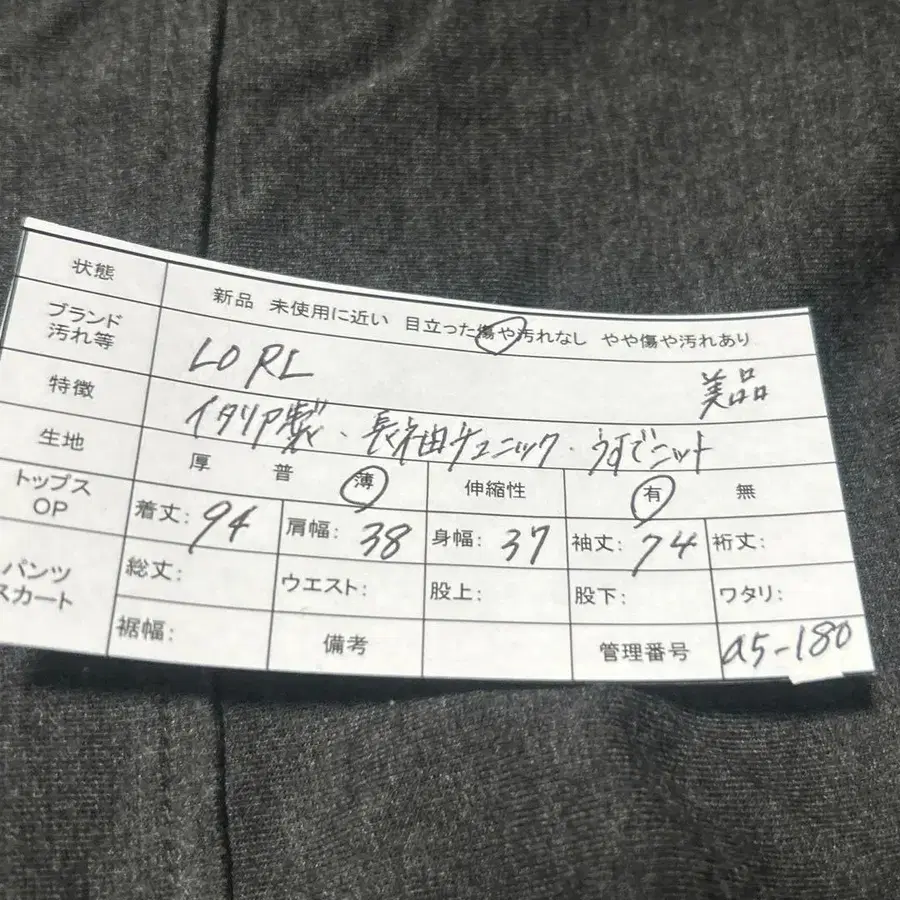 状態 新品 未使用に近い 目立った傷や汚れなし やや傷や汚れあり
ブランド
汚れ等 LORL 美品
特徴 イタリア製・長袖チュニック・うすでニット
生地 厚 普 薄 伸縮性 有 無
トップス
OP 着丈: 94 肩幅: 38 身幅: 37 袖丈: 74 裄丈:
パンツ
スカート 総丈: ウエスト: 股上: 股下: ワタリ:
裾幅: 備考 管理番号 a5-180